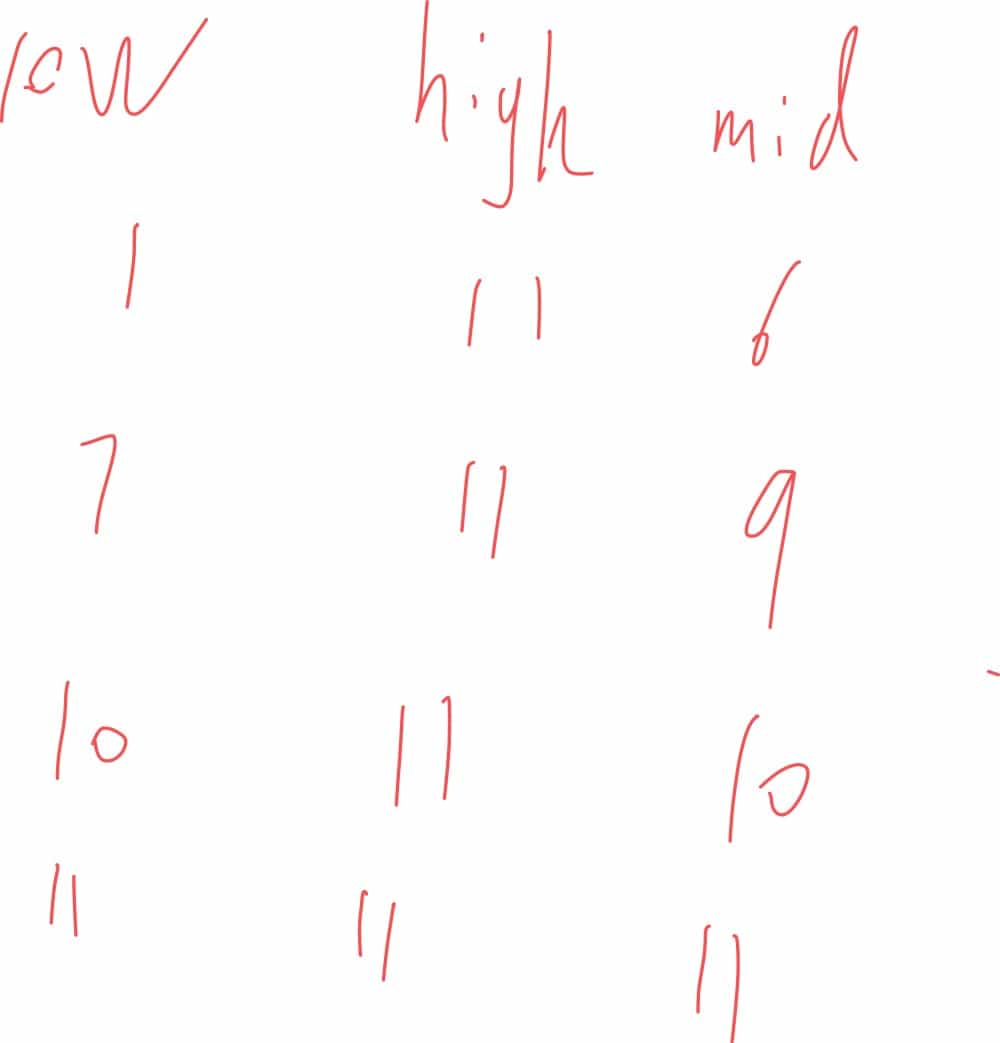 low high mid
1 11 6
7 11 9
10 11 10
11 11 11